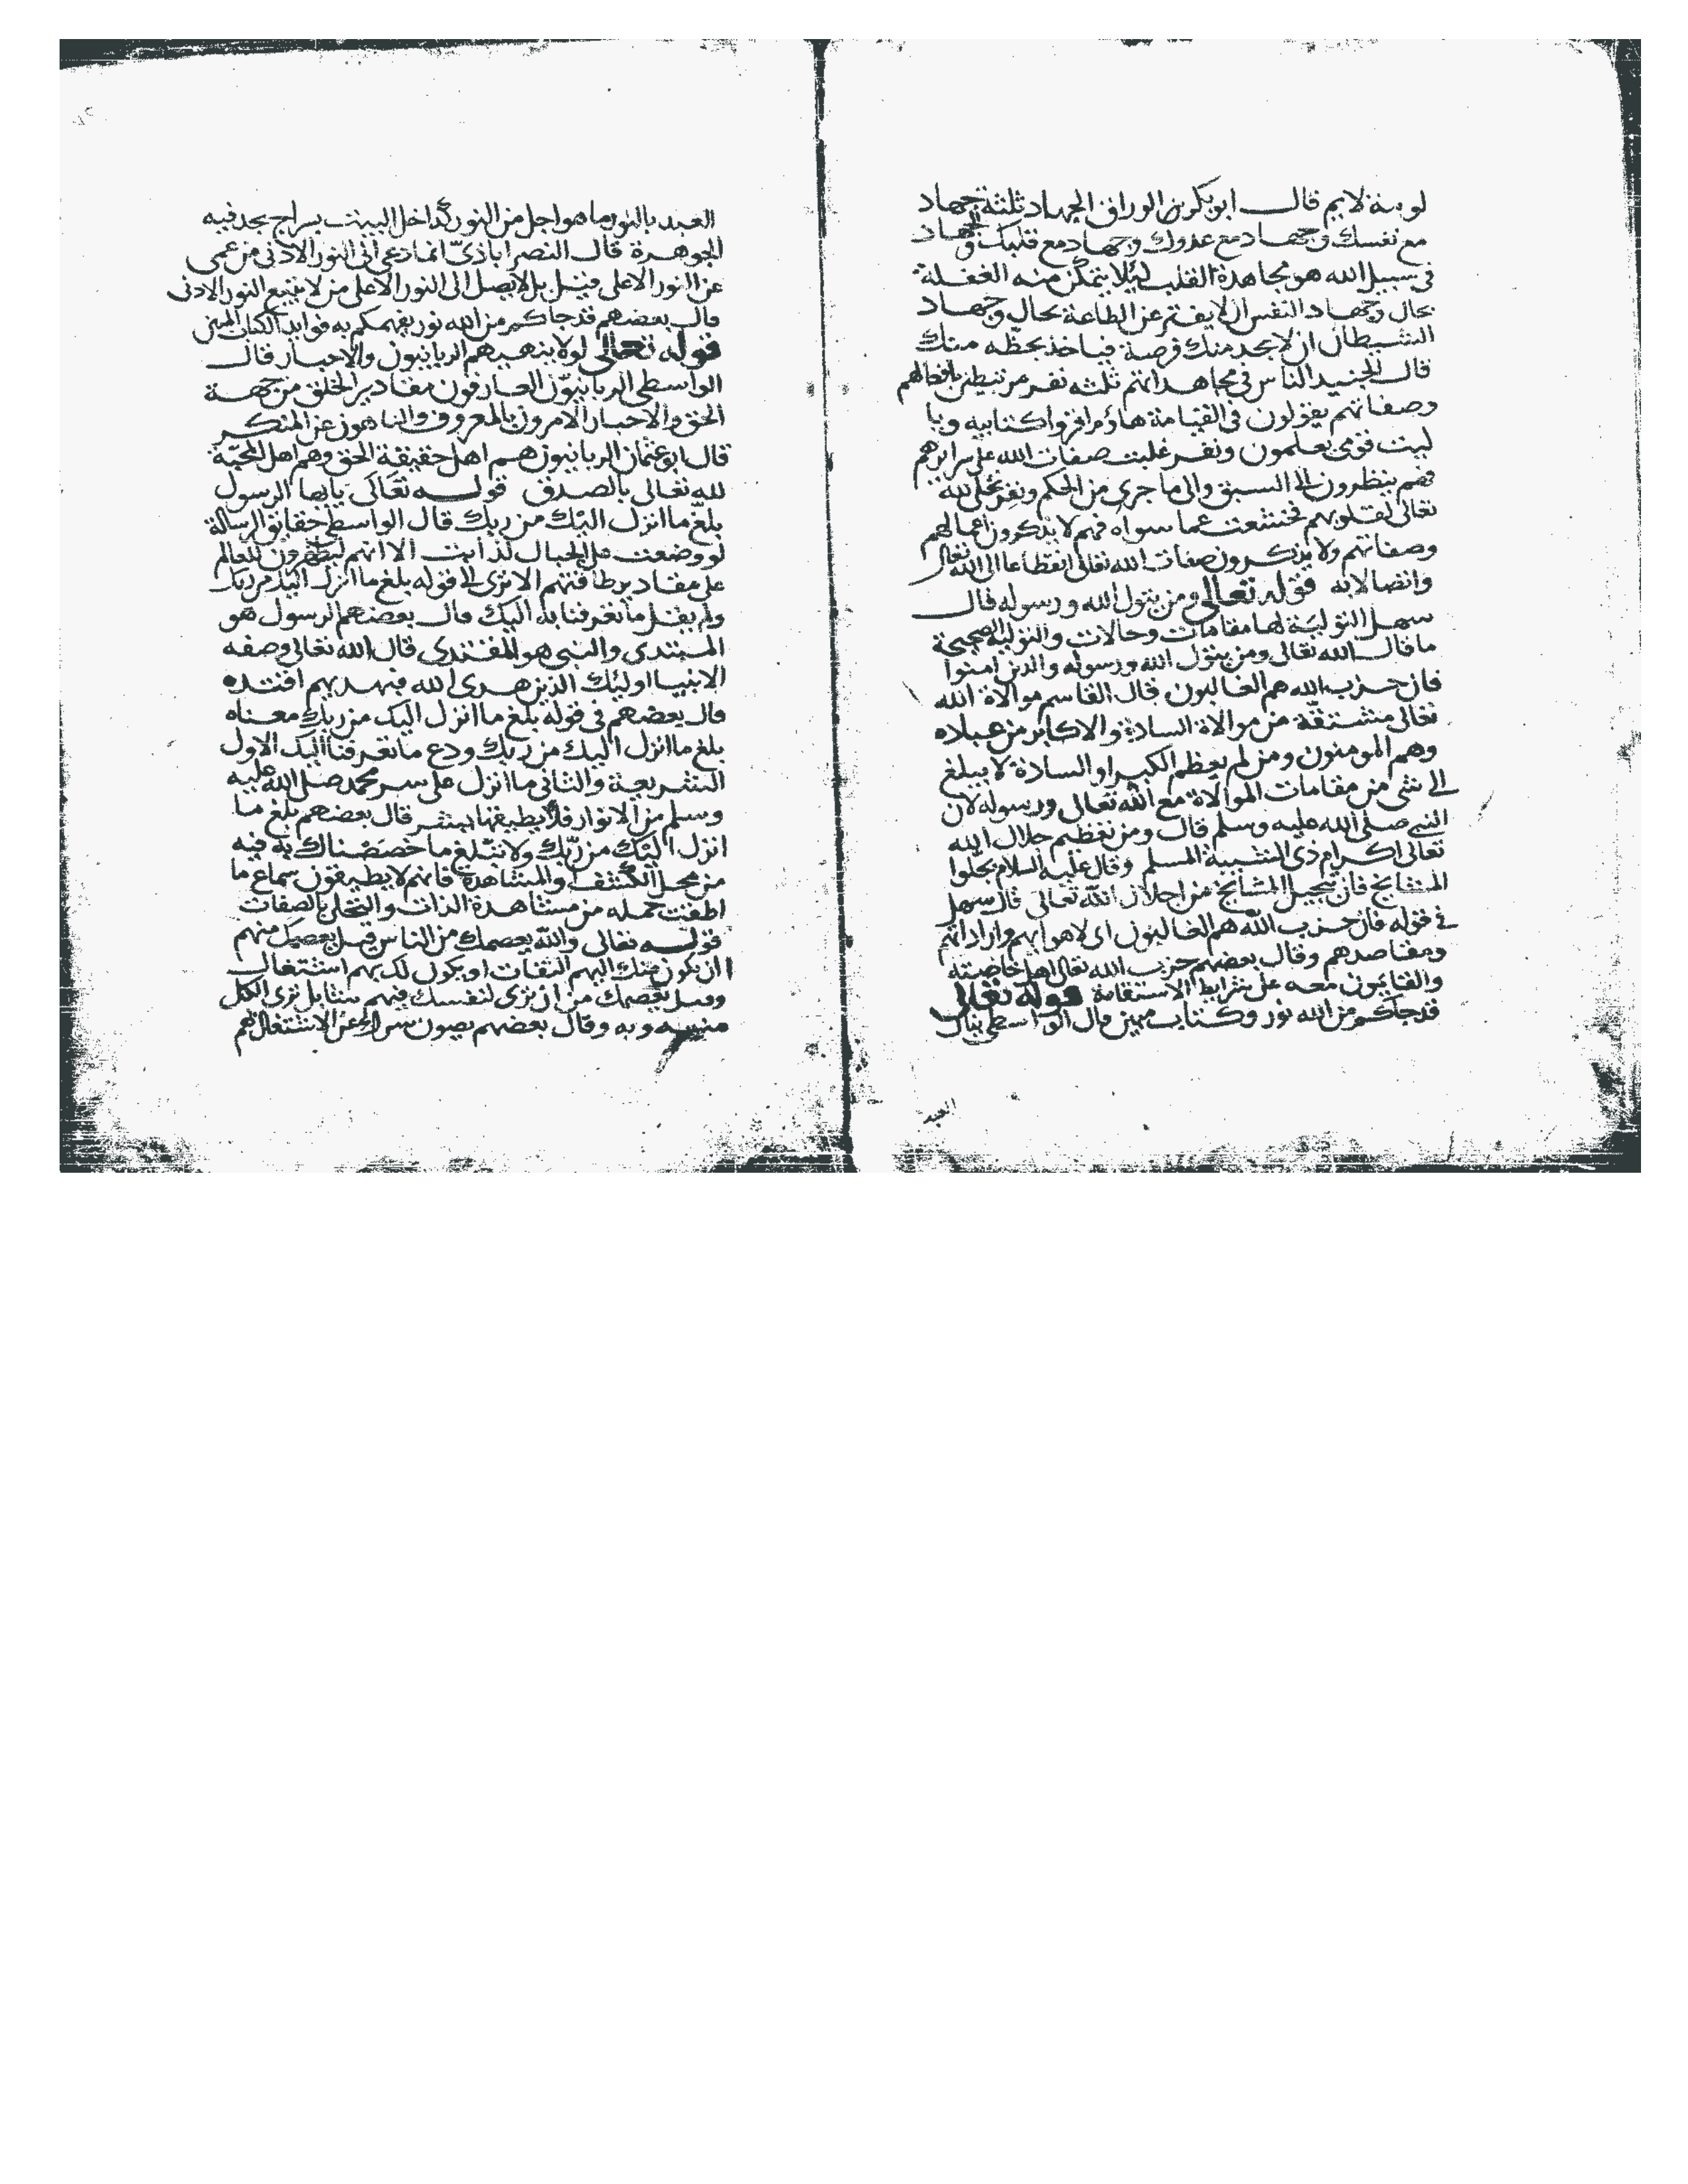 لومة لايم قال ابو بكر بن الوراق الجهاد ثلثة جهاد
مع نفسك وجهاد مع عدوك وجهاد مع قلبك والجهاد
فى سبيل الله هو مجاهدة القلب ليلا يتمكن منه الغفلة
بحال وجهاد النفس ان لا يفتر عن الطاعة بحال وجهاد
الشيطان ان لا يجد منك فرصة فياخذ بحظه منك
قال الجنيد الناس فى مجاهداتهم ثلثه نفر مرتبطين بافعالهم
وصفاتهم يقولون فى القيامة هاؤم اقرؤا كتابيه ويا
ليت قومى يعلمون ونفر غلبت صفات الله على سرايرهم
فهم ينظرون الى السبق والى ما جرى من الحكم ونفر تجلى الله
تعالى لقلوبهم فخشعت عما سواه فهم لا يذكرون اعمالهم
وصفاتهم ولا يذكرون صفات الله تعالى انقطاعا الى الله تعالى
واتصالا به قوله تعالى ومن يتول الله ورسوله قال
سهل التولية لها مقامات وحالات والتولية الصحيحة
ما قال الله تعالى ومن يتول الله ورسوله والذين امنوا
فان حزب الله هم الغالبون قال القاسم موالاة الله
تعالى مشتقة من موالاة السادة والاكابر من عباده
وهم المومنون ومن لم يعظم الكبير او السادة لا يبلغ
الى شى من مقامات الموالاة مع الله تعالى ورسوله لان
النبى صلى الله عليه وسلم قال ومن تعظيم جلال الله
تعالى اكرام ذى الشيبة المسلم وقال عليه السلام بجلوا
المشايخ فان تبجيل المشايخ من اجلال الله تعالى قال سهل
فى قوله فان حزب الله هم الغالبون اى لاهوايهم واراداتهم
ومقاصدهم وقال بعضهم حزب الله تعالى اهل خاصته
والقايمون معه على شرايط الاستقامة قوله تعالى
قد جاكم من الله نور وكتاب مبين قال الواسطى ينال
العبد
العبد بالنور ما هو اجل من النور كداخل البيت بسراج يجد فيه
الجوهرة قال النصراباذى انما دعى الى النور الادنى من عمى
عن النور الاعلى فيل بل لا يصل الى النور الاعلى من لا يتبع النور الادنى
قال بعضهم قد جاكم من الله نور يفهمكم به فوايد الكتاب المبين
قوله تعالى لولا ينهيهم الربانيون والاحبار قال
الواسطى الربانيون العارفون مقادير الخلق من جهة
الحق والاحبار الامرون بالمعروف والناهون عن المنكر
قال ابو عثمان الربانيون هم اهل حقيقة الحق وهم اهل المحبة
لله تعالى بالصدق قوله تعالى يايها الرسول
بلغ ما انزل اليك من ربك قال الواسطى حقايق الرسالة
لو وضعت على الجبال لذابت الا انهم يظهرون للعالم
على مقادير طاقتهم الا ترى الى قوله بلغ ما انزل اليك من ربك
ولم يقل ما تعرفنا به اليك قال بعضهم الرسول هو
المبتدى والنبى هو المقتدى قال الله تعالى وصفه
الانبيا اوليك الذين هدى الله فبهديهم اقتده
قال بعضهم فى قوله بلغ ما انزل اليك من ربك معناه
بلغ ما انزل اليك من ربك ودع ما تعرفنا اليك الاول
الشريعة والثانى ما انزل على سر محمد صلى الله عليه
وسلم من الانوار فلا يطيقها بشر قال بعضهم بلغ ما
انزل اليك من ربك ولا تبلغ ما خصصناك به فيه
من محل الكشف والمشاهدة فانهم لا يطيقون سماع ما
اطقت حمله من مشاهدة الذات والتجلى بالصفات
قوله تعالى والله يعصمك من الناس قيل يعصمك منهم
ان يكون منك اليهم التفات او يكون لك بهم اشتغال
وقيل يعصمك من ان ترى لنفسك فيهم شيا بل ترى الكل
منه وبه وقال بعضهم يصون سرك عن الاشتغال بهم